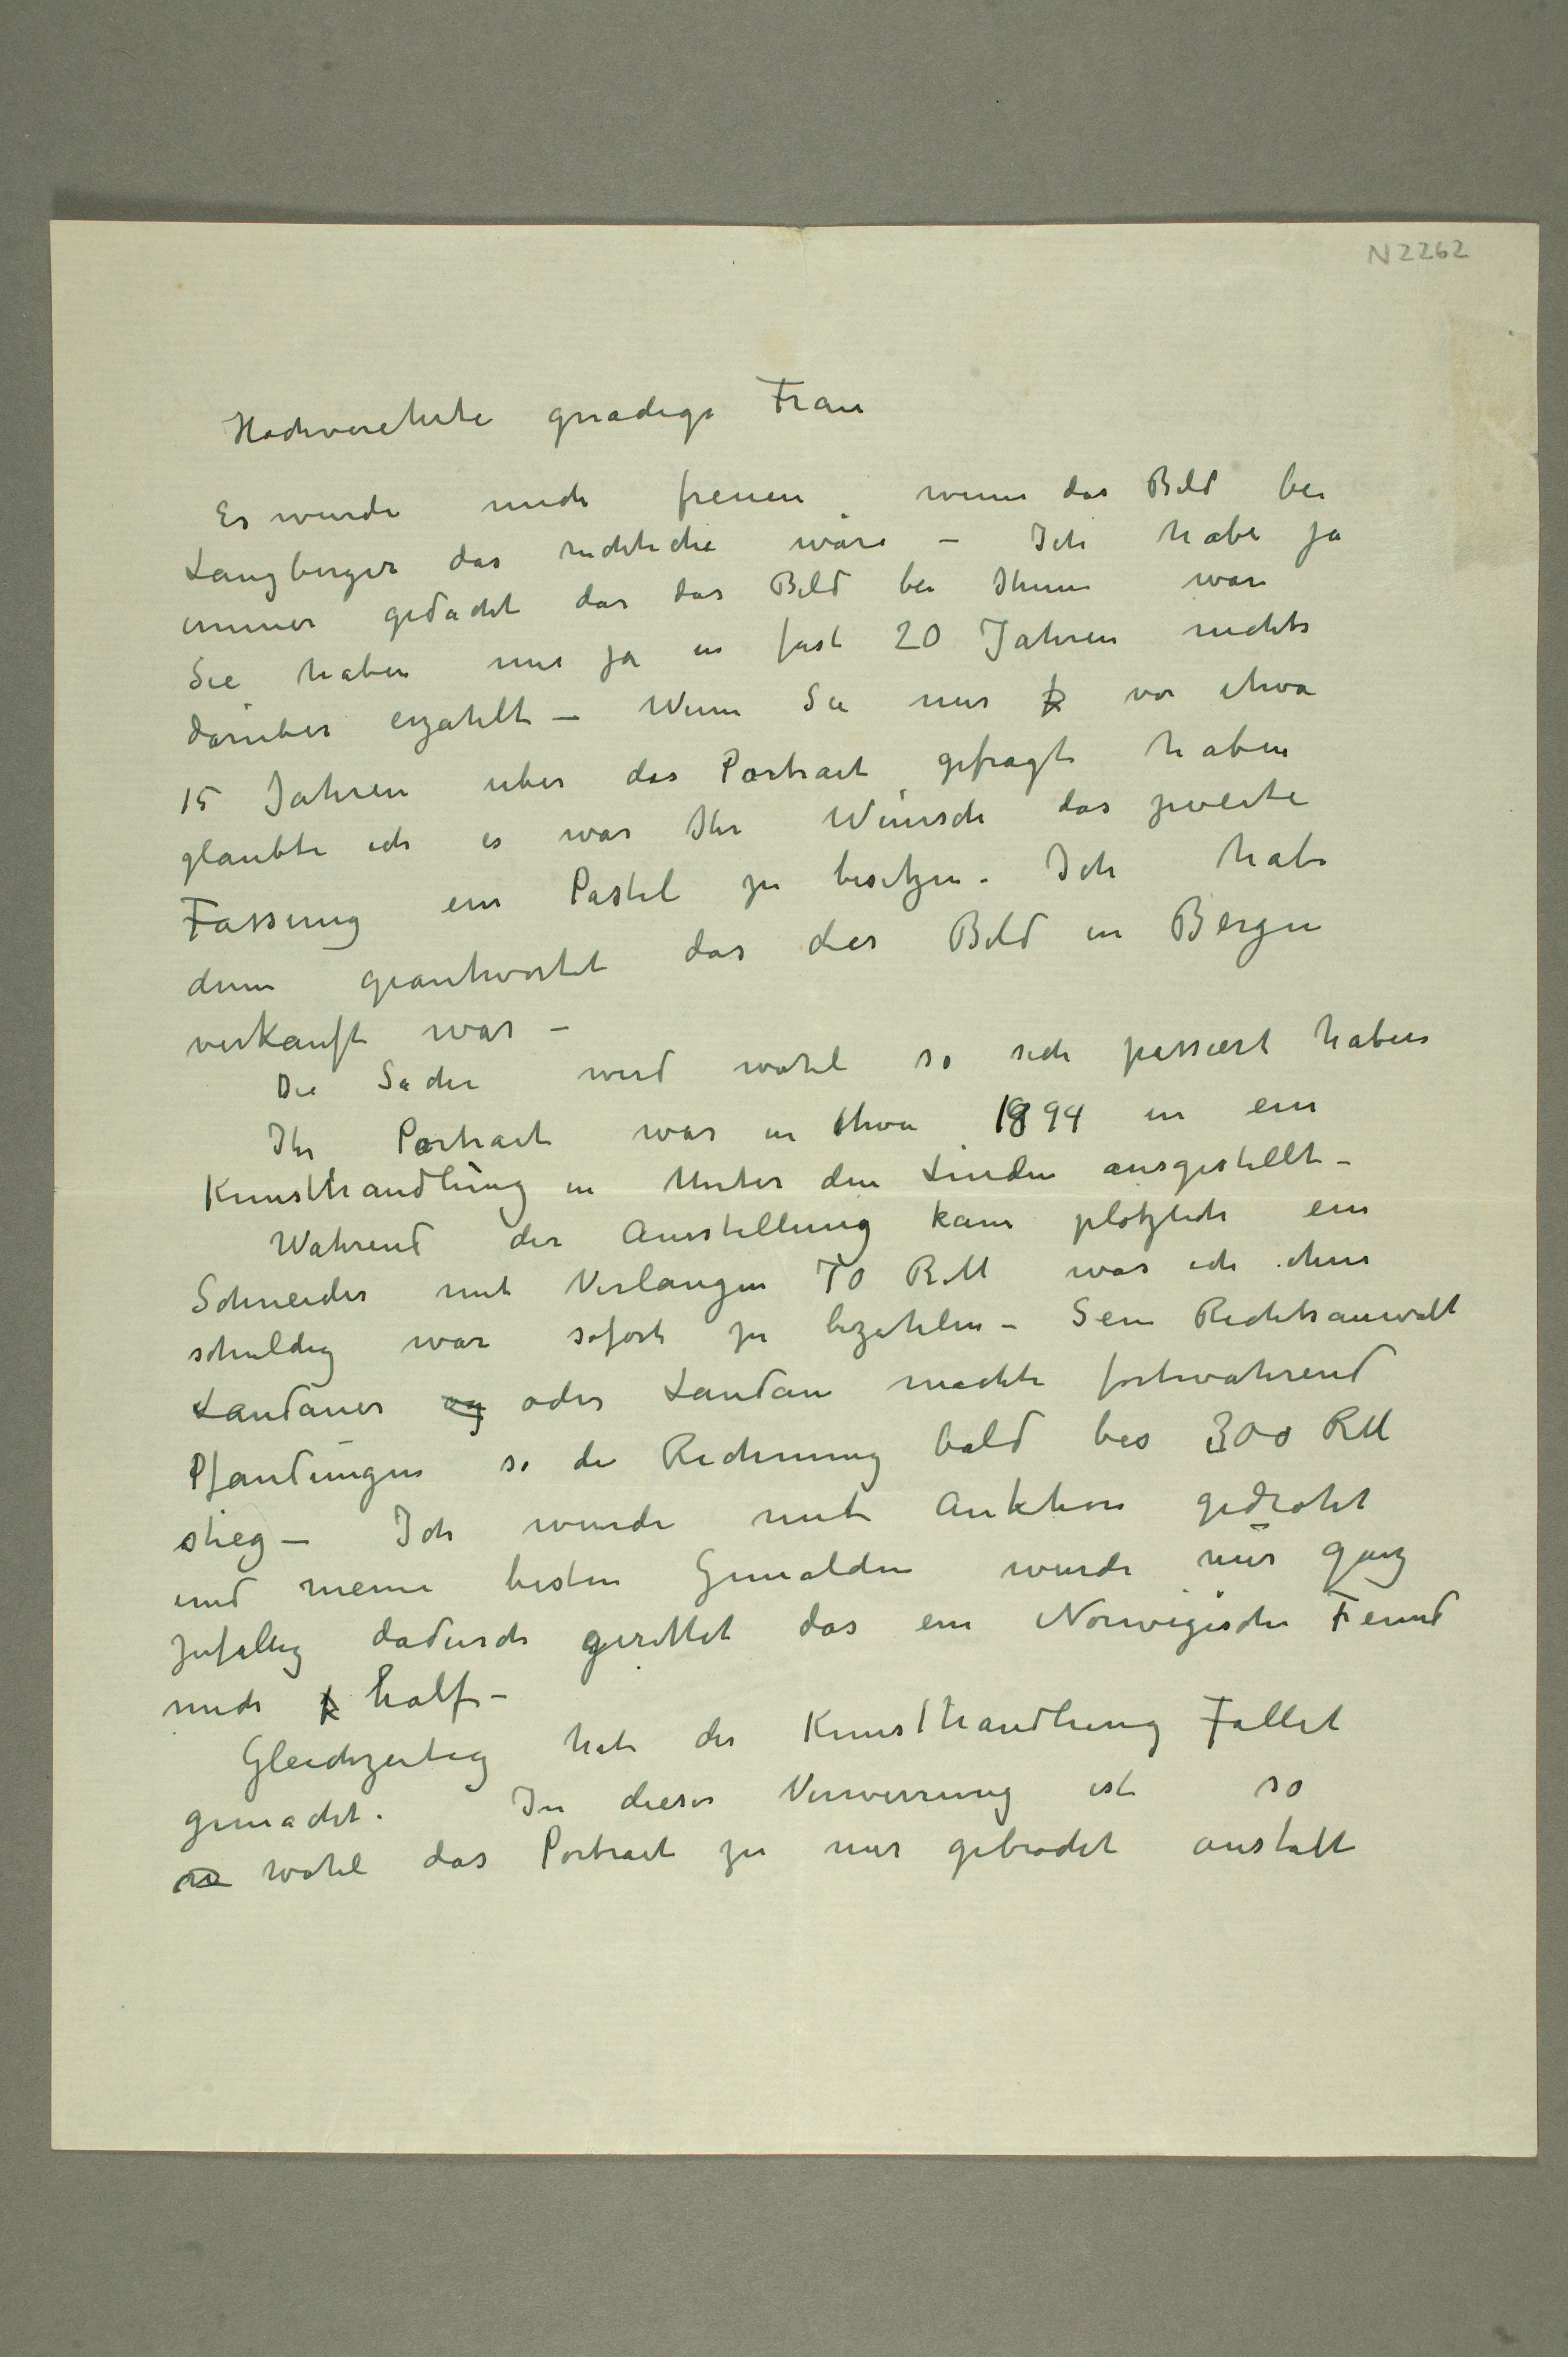 N 2262
Hochverehrte gnadige Frau
Es wurde mich freuen wenn das Bild bei
Langberger das richtiche wäre – Ich habe ja
immer gedacht das das Bild bei Ihnen war
Sie haben mir ja in fast 20 Jahren nichts
darüber erzahlt – Wenn Sie mir vor etwa
15 Jahren uber das Portrait gefragt haben
glaubte ich es war Ihr Wünsch das zweite
Fassung ein Pastel zu besitzen. Ich habe
denn geantwortet das das Bild in Bergen
verkauft war –
Die Sache wird wohl so sich passiert haben
Ihr Portrait war in etwa 1894 in ein
Kunsthandlüng in Unter den Linden ausgestellt –
Wahrend der Ausstellung kam plotzlich ein
Schneider mit Verlangen 70 RM was ich ihm
schuldig war sofort zu bezahlen – Sein Rechtsanwalt
Landauer og oder Landau machte fortwahrend
Pfandungen so die Rechnung bald bis 300 RM
stieg – Ich wurde mit Auktion gedroht
und meine besten Gemalden wurde nur ganz
zufallig dadurch gerettet das ein Norwegischer Feund
mich half –
Gleichzeitig hat der Kunsthandlung Fallit
gemacht. In dieser Verwirrung ist so
wohl das Portrait zu mir gebracht anstatt